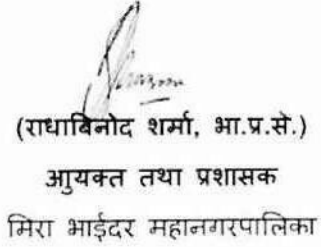 (राधाबिनोद शर्मा, भा.प्र.से.)
आयुक्त तथा प्रशासक
मिरा भाईंदर महानगरपालिका